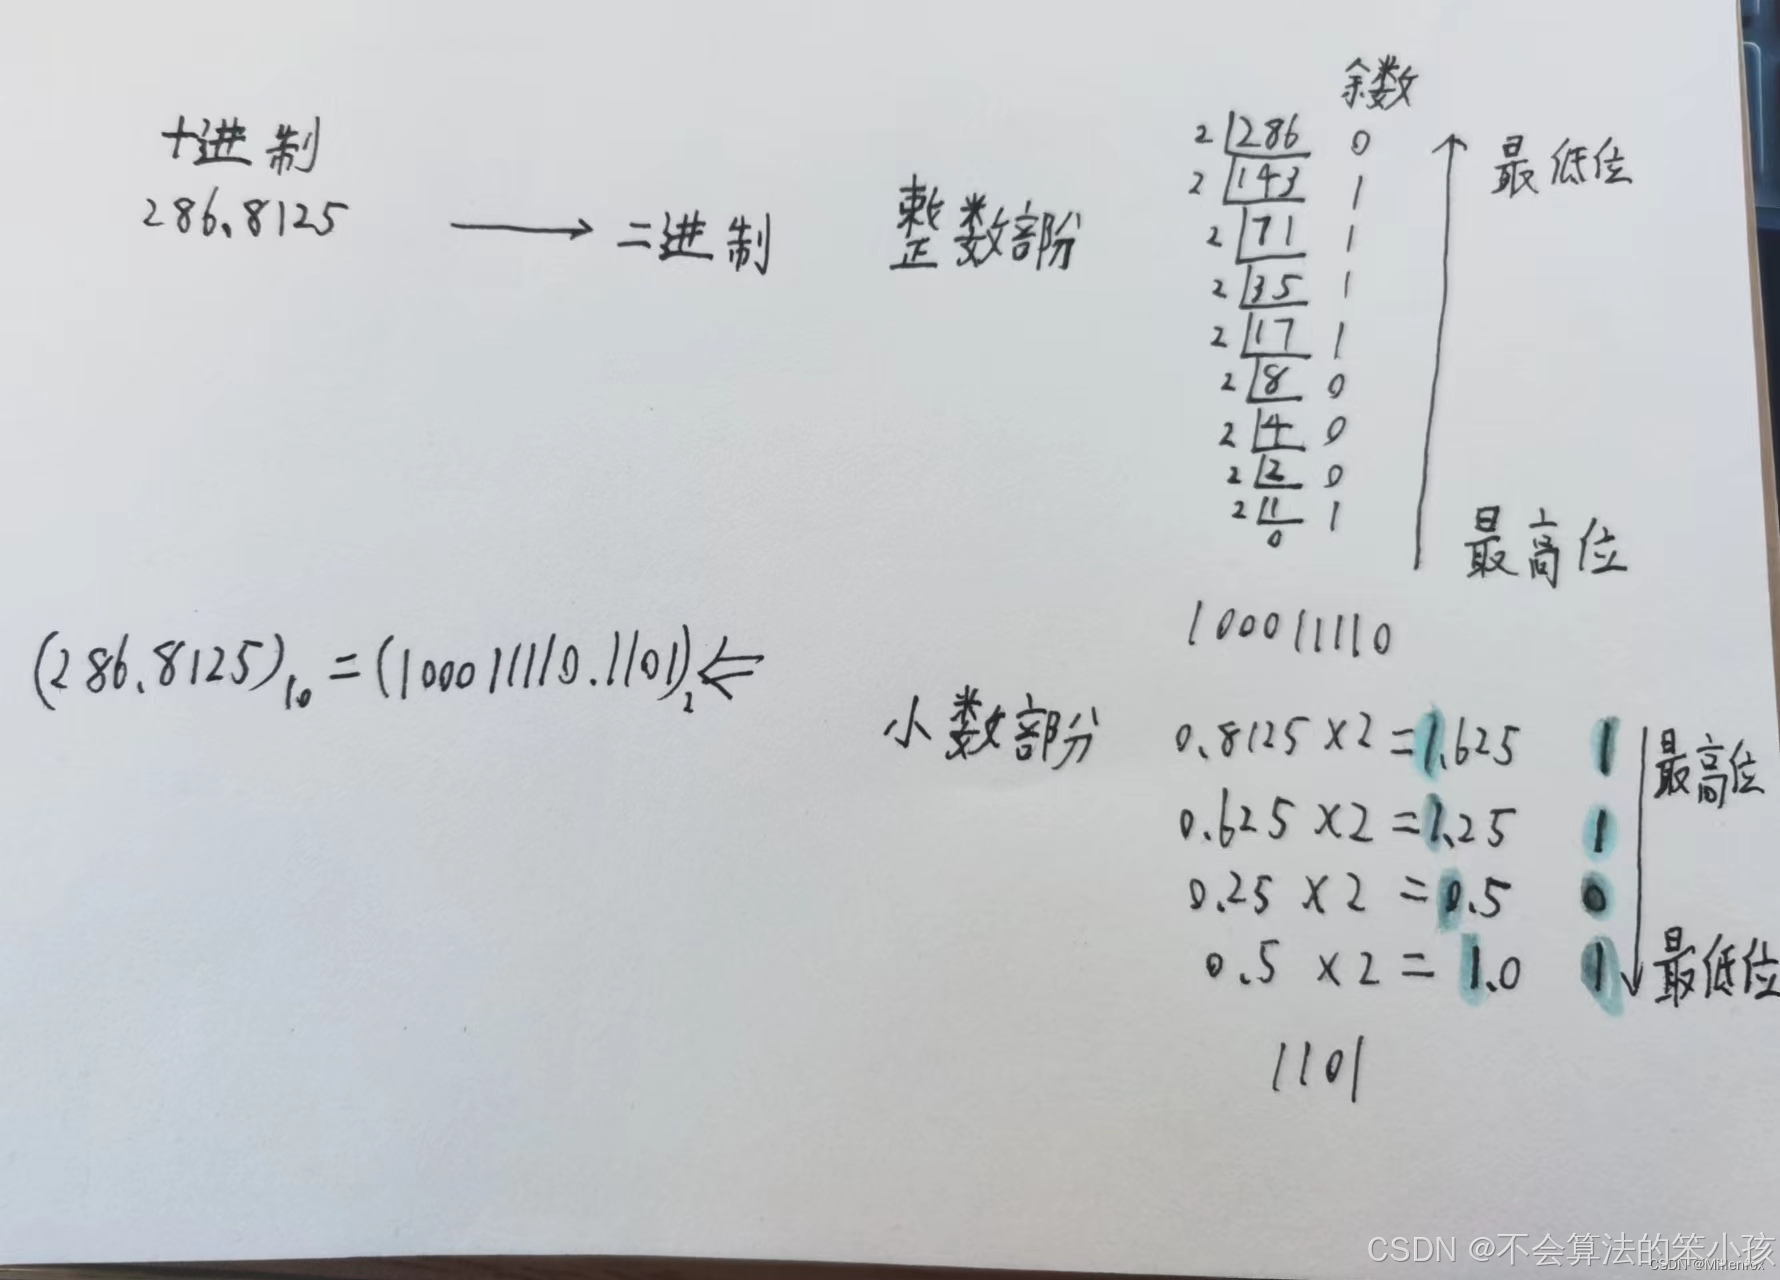 十进制
286.8125
二进制
整数部份
余数
2 286 0
2 143 1
2 71 1
2 35 1
2 17 1
2 8 0
2 4 0
2 2 0
2 1 1
0
最低位
最高位
100011110
(286.8125)10 = (100011110.1101)2
小数部分
0.8125 × 2 = 1.625 1
0.625 × 2 = 1.25 1
0.25 × 2 = 0.5 0
0.5 × 2 = 1.0 1
最高位
最低位
1101
CSDN @不会算法的笨小孩